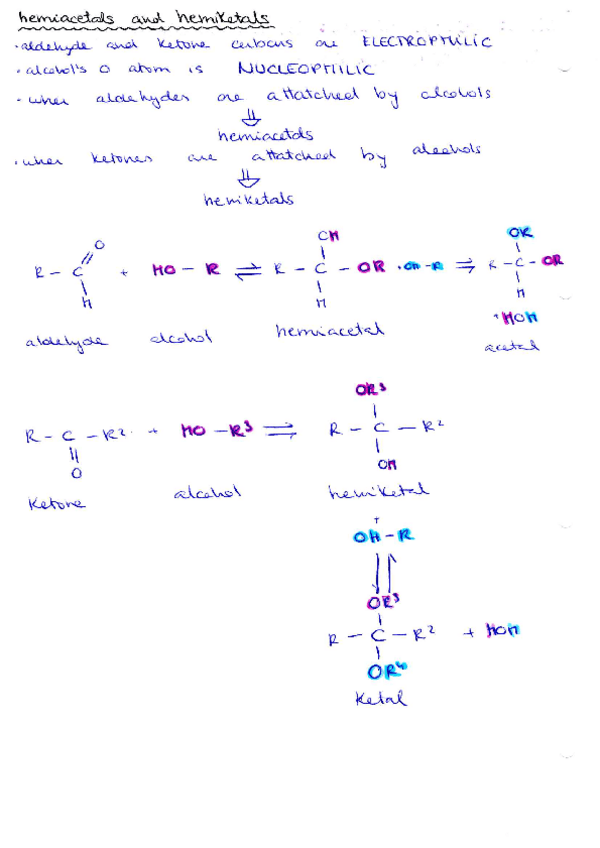 hemiacetals and hemiketals
• aldehyde and ketone carbons are ELECTROPHILIC
• alcohol's O atom is NUCLEOPHILIC
• when aldehydes are attatched by alcohols
⇓
hemiacetals
• when ketones are attatched by alcohols
⇓
hemiketals
O OH OR
R - C + HO - R ⇌ R - C - OR + OH - R ⇌ R - C - OR
H H H
+ HOH
aldehyde alcohol hemiacetal acetal
OR³
R - C - R² + HO - R³ ⇌ R - C - R²
O OH
ketone alcohol hemiketal
+
OH - R
OR³
R - C - R² + HOH
OR⁴
ketal